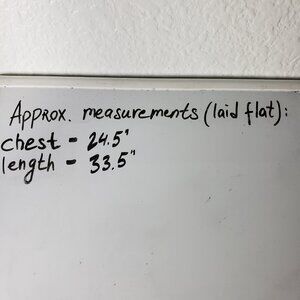 Approx. measurements (laid flat):
chest - 24.5"
length - 33.5"